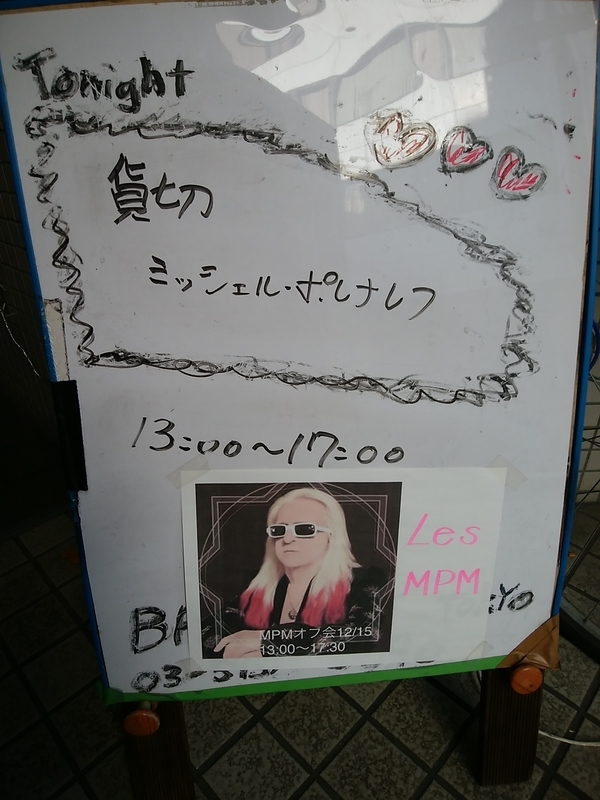 Tonight
貸切
ミッシェル・ポルナレフ
13:00〜17:00
Les
MPM
MPMオフ会12/15
13:00〜17:30
BA
03-